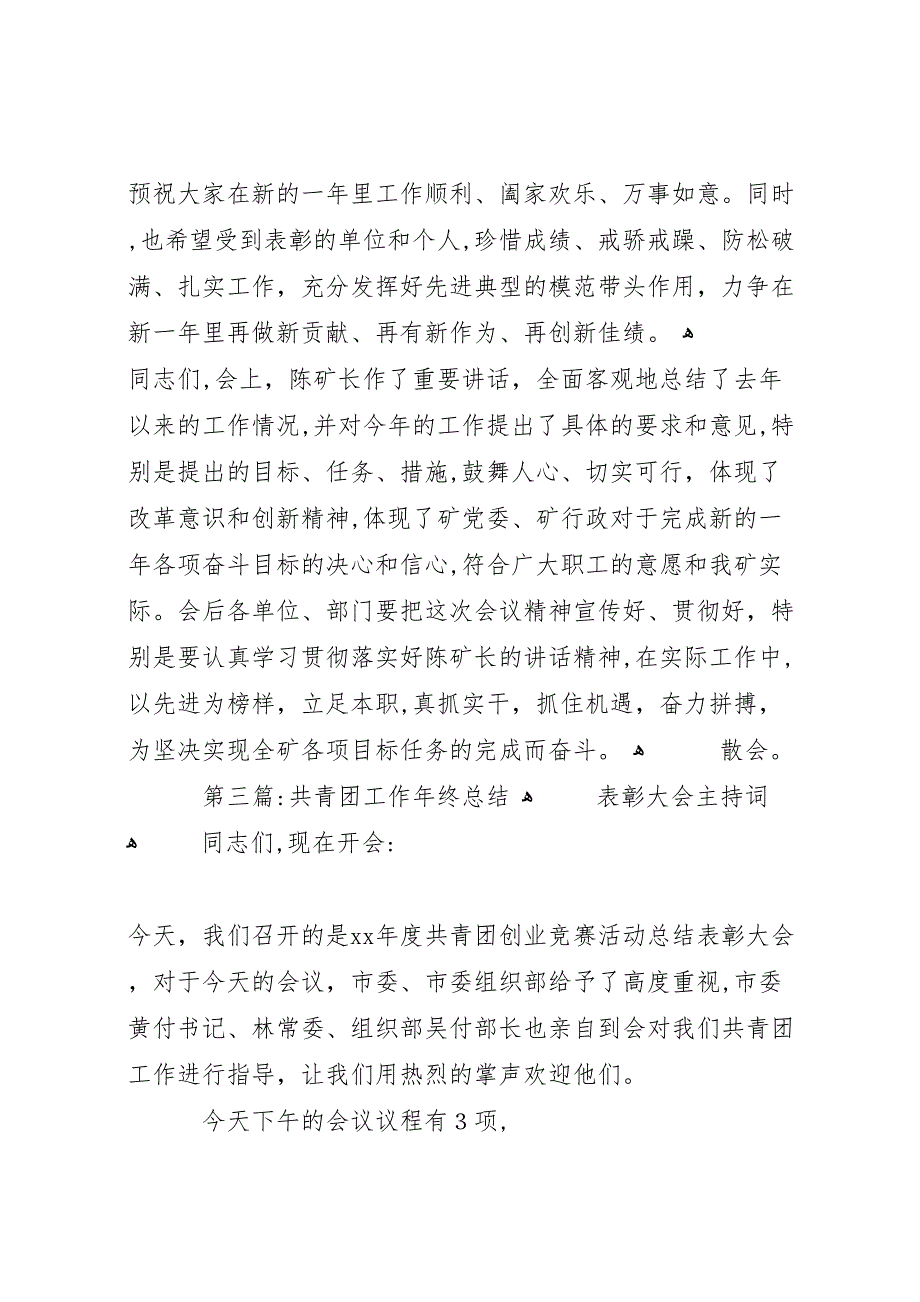 预祝大家在新的一年里工作顺利、阖家欢乐、万事如意。同时
,也希望受到表彰的单位和个人,珍惜成绩、戒骄戒躁、防松破
满、扎实工作，充分发挥好先进典型的模范带头作用，力争在
新一年里再做新贡献、再有新作为、再创新佳绩。 ﻫ
同志们,会上，陈矿长作了重要讲话，全面客观地总结了去年
以来的工作情况,并对今年的工作提出了具体的要求和意见,特
别是提出的目标、任务、措施,鼓舞人心、切实可行，体现了
改革意识和创新精神,体现了矿党委、矿行政对于完成新的一
年各项奋斗目标的决心和信心,符合广大职工的意愿和我矿实
际。会后各单位、部门要把这次会议精神宣传好、贯彻好，特
别是要认真学习贯彻落实好陈矿长的讲话精神,在实际工作中,
以先进为榜样，立足本职,真抓实干，抓住机遇，奋力拼搏，
为坚决实现全矿各项目标任务的完成而奋斗。 ﻫ 散会。
第三篇:共青团工作年终总结 ﻫ 表彰大会主持词
ﻫ 同志们,现在开会:
今天，我们召开的是xx年度共青团创业竞赛活动总结表彰大会
，对于今天的会议，市委、市委组织部给予了高度重视,市委
黄付书记、林常委、组织部吴付部长也亲自到会对我们共青团
工作进行指导，让我们用热烈的掌声欢迎他们。
今天下午的会议议程有３项,